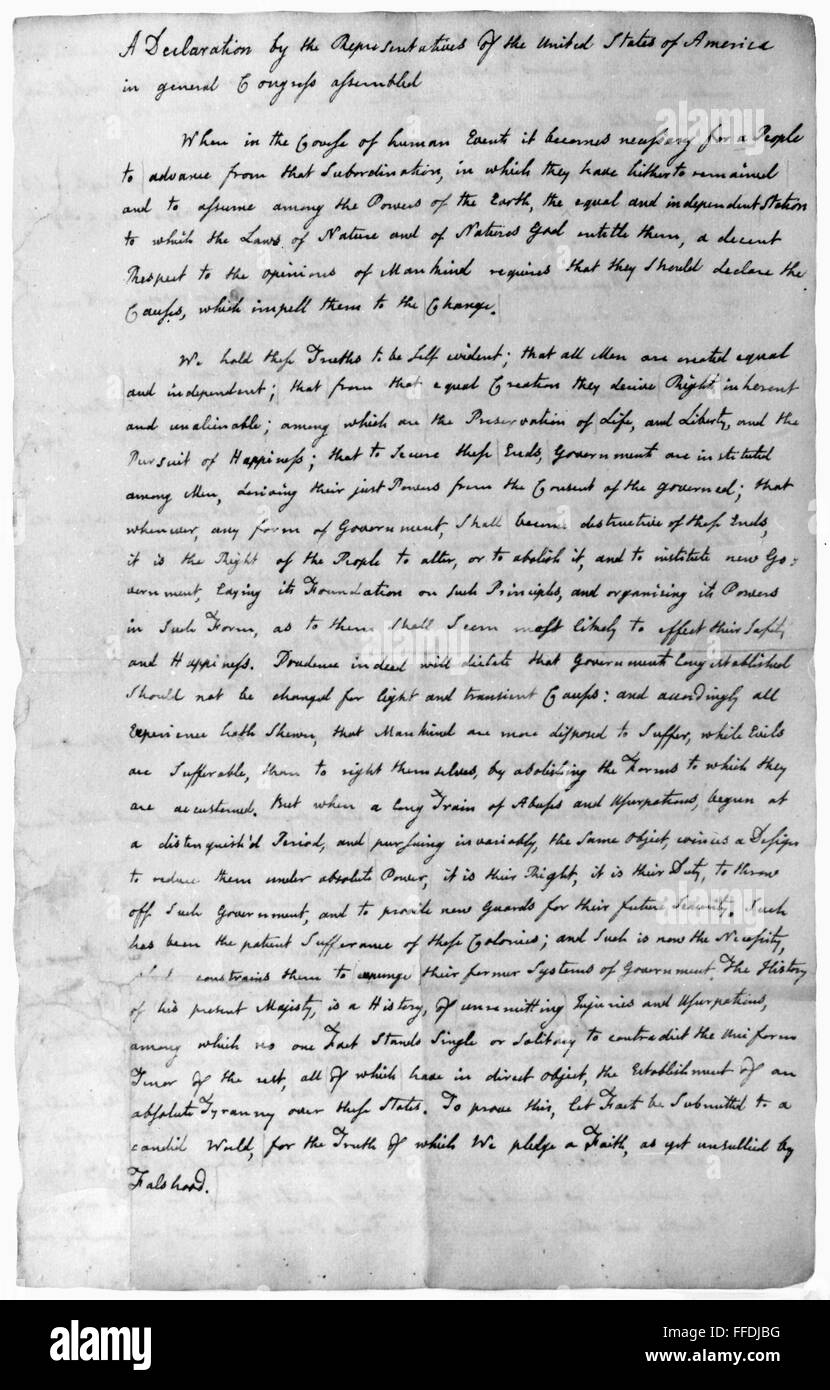 A Declaration by the Representatives of the United States of America
in general Congress assembled
When in the Course of human Events it becomes necessary for a People
to advance from that Subordination, in which they have hitherto remained
and to assume among the Powers of the Earth, the equal and independent Station
to which the Laws of Nature and of Natures God entitle them, a decent
Respect to the opinions of Mankind requires that they Should declare the
Causes, which impell them to the Change.
We hold these Truths to be Self evident; that all Men are created equal
and independent; that from that equal Creation they derive Rights inherent
and unalienable; among which are the Preservation of Life, and Liberty, and the
Pursuit of Happiness; that to Secure these Ends, Governments are instituted
among Men, deriving their just Powers from the Consent of the governed; that
whenever, any form of Government, Shall become destructive of these Ends,
it is the Right of the People to alter, or to abolish it, and to institute new Go=
vernment, laying its Foundation on Such Principles, and organizing its Powers
in Such Form, as to them Shall Seem most likely to effect their Safety
and Happiness. Prudence indeed will dictate that Governments long established
Should not be changed for light and transient Causes: and accordingly all
Experience hath Shewn, that Mankind are more disposed to Suffer, while Evils
are Sufferable, than to right themselves, by abolishing the Forms to which they
are accustomed. But when a long Train of Abuses and Usurpations, begun at
a distinguish'd Period, and pursuing invariably, the Same Object, evinces a Design
to reduce them under absolute Power, it is their Right, it is their Duty, to throw
off Such Government, and to provide new Guards for their future Security. Such
has been the patient Sufferance of these Colonies; and Such is now the Necessity,
constrains them to expunge their former Systems of Government. The History
of his present Majesty, is a History, of unremitting Injuries and Usurpations,
among which no one Fact Stands Single or Solitary to contradict the Uniform
Tenor of the rest, all of which have in direct object, the Establishment of an
absolute Tyranny over these States. To prove this, let Facts be Submitted to a
candid World, for the Truth of which We pledge a Faith, as yet unsullied by
Falshood.
alamy
alamy
alamy
alamy
Image ID: FFDJBG
www.alamy.com